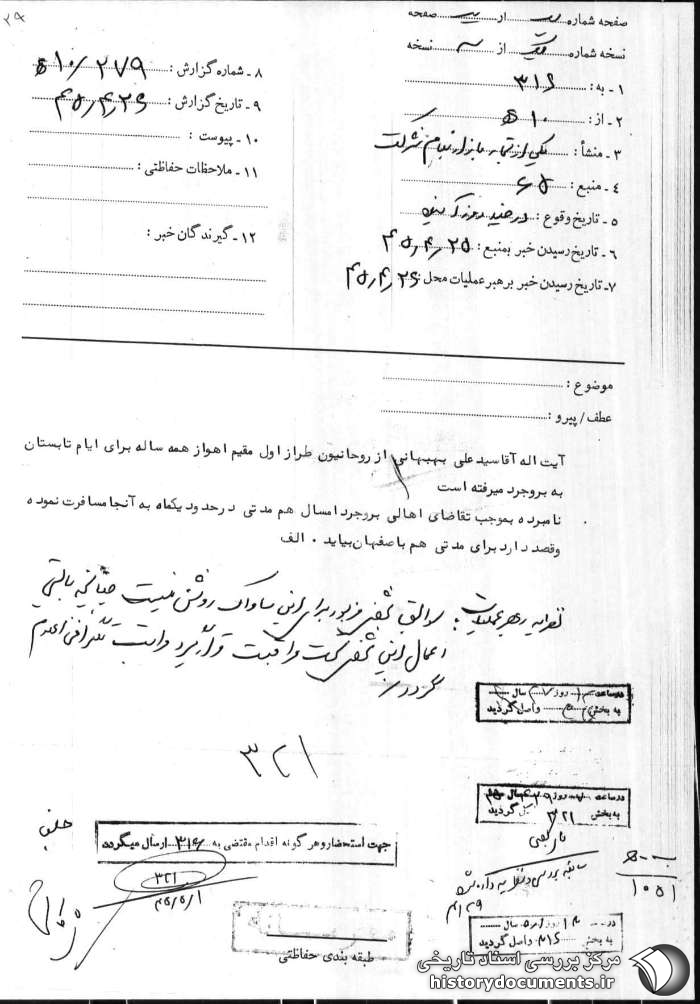 صفحه شماره از صفحه
نسخه شماره یک از سه نسخه
۱ - به : ۳۱۶
۲ - از : ۱۰ ه
۳ - منشأ : یکی از تجار بازار بنام شرکت
۴ - منبع :
۵ - تاریخ وقوع : در چند روز آینده
۶ - تاریخ رسیدن خبر بمنبع : ۴۵٫۴٫۲۵
۷ - تاریخ رسیدن خبر برهبر عملیات محل : ۴۵٫۴٫۲۶
۸ - شماره گزارش : ۱۰/۲۷۹ ه
۹ - تاریخ گزارش : ۴۵٫۴٫۲۶
۱۰ - پیوست :
۱۱ - ملاحظات حفاظتی :
۱۲ - گیرندگان خبر :
موضوع :
عطف / پیرو :
آیت اله آقا سید علی بهبهانی از روحانیون طراز اول مقیم اهواز همه ساله برای ایام تابستان
به بروجرد میرفته است
نامبرده بموجب تقاضای اهالی بروجرد امسال هم مدتی درحدود یکماه به آنجا مسافرت نموده
وقصد دارد برای مدتی هم باصفهان بیاید ۰ الف
نظریه رهبر عملیات : سوابق شخص مزبور برای این ساواک روشن نیست چنانچه بایستی
اعمال این شخص تحت مراقبت قرار گیرد مراتب تلگرافی اعلام
گردد
در ساعت روز سال
به بخش واصل گردید
۳۲۱
در ساعت روز سال
به بخش ۳۲۱ گردید
بایگانی
جهت استحضار و هر گونه اقدام مقتضی به ۳۱۶ ارسال میگردد
۳۲۱
۴۵/۵/۱
سابقه بررسی
۱۰۵۱
در روز سال
به بخش ۳۱۶ واصل گردید
طبقه بندی حفاظتی
مرکز بررسی اسناد تاریخی
historydocuments.ir